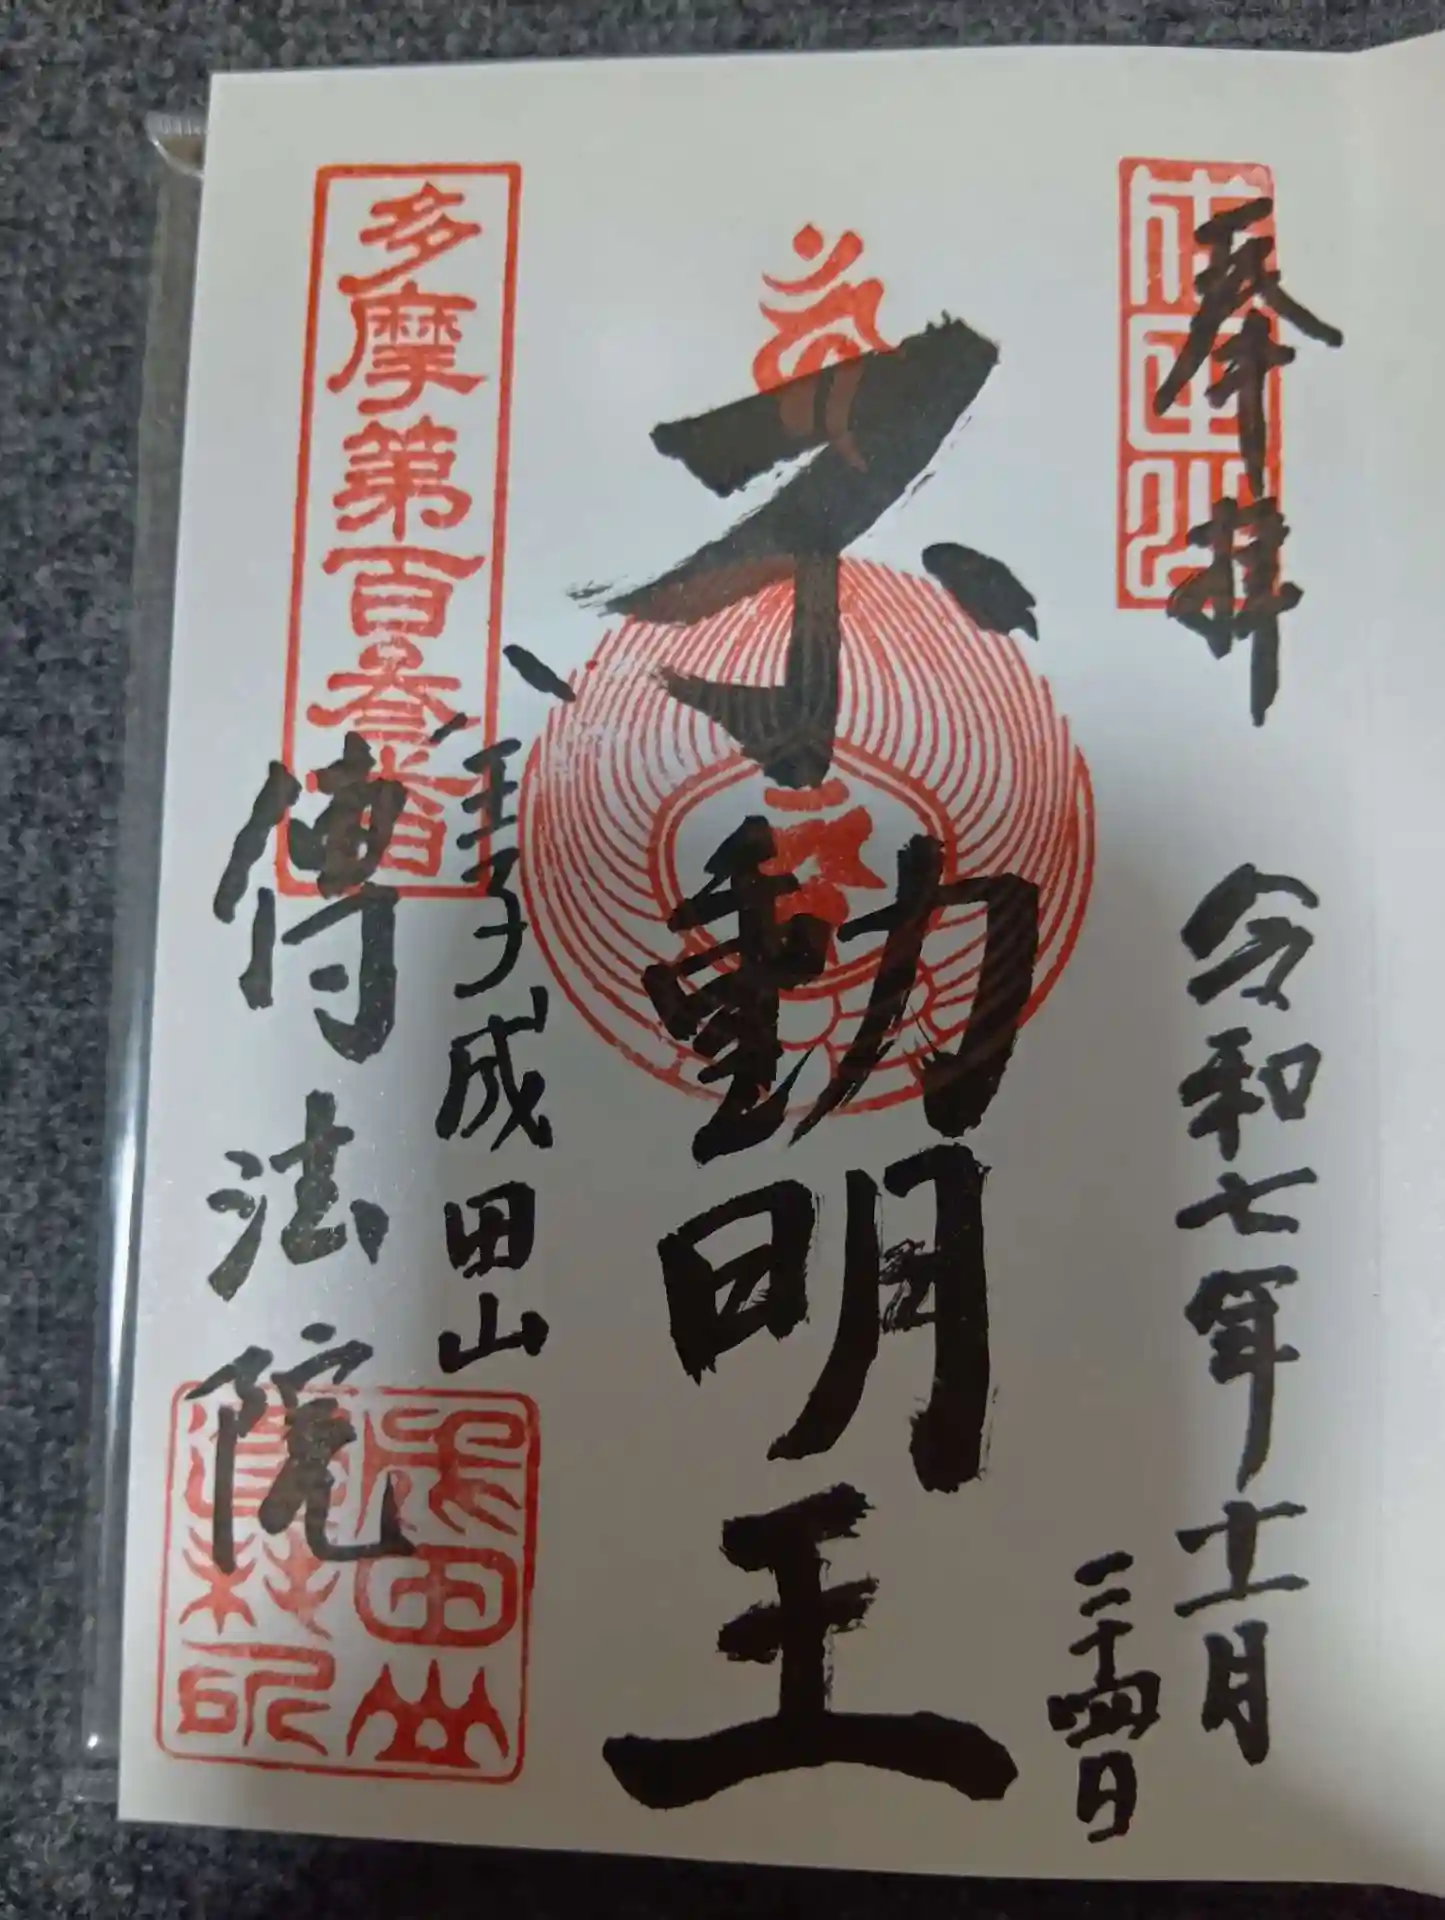 奉拝
令和七年十一月
二十四日
不動明王
八王子成田山
傳法院
多摩第百叁番
成田山